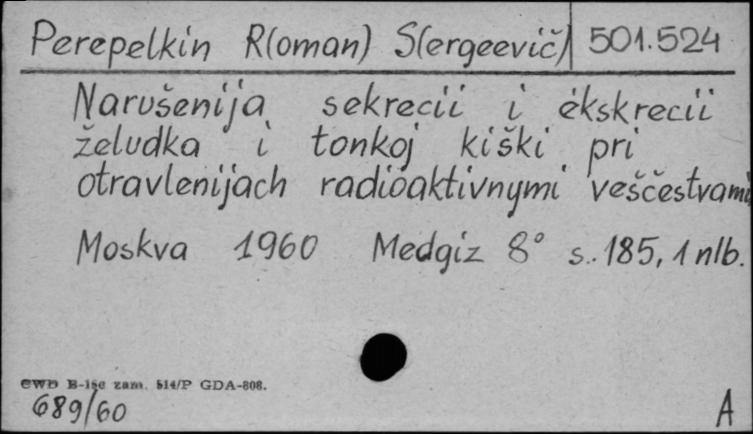 Perepelkin R(oman) S(ergeevič) 501.524
Narušenija sekrecii i ėkskrecii
želudka i tonkoj kiški pri
otravlenijach radioaktivnymi veščestvami
Moskva 1960 Medgiz 8° s. 185, 1 nlb.
CWD B-15c zam. 514/P GDA-808.
689/60 A